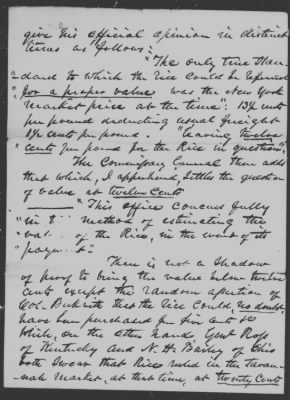 give his official opinion in distinct
terms as follows:
"The only true stan-
dard to which the Rice could be referred
"for a proper value" was the New York
"market price at the time": 13½ cents
per pound deducting usual freight
1½ cents per pound. "leaving twelve
cents per pound for the Rice in question".
The Commissary General then adds
that which, I apprehend, settles the question
of value at twelve cents
"This office concurs fully
"in method of estimating the
of the Rice, in the event of its
There is not a shadow
of proof to bring the value below twelve
cents except the random assertion of
Col. that the Rice could, no doubt,
have been purchased for six cents
While, on the other hand Genl Ross
of Kentucky and N. H. of Ohio
both swear that Rice ruled in the Savan-
nah market, at that time, at twenty cents